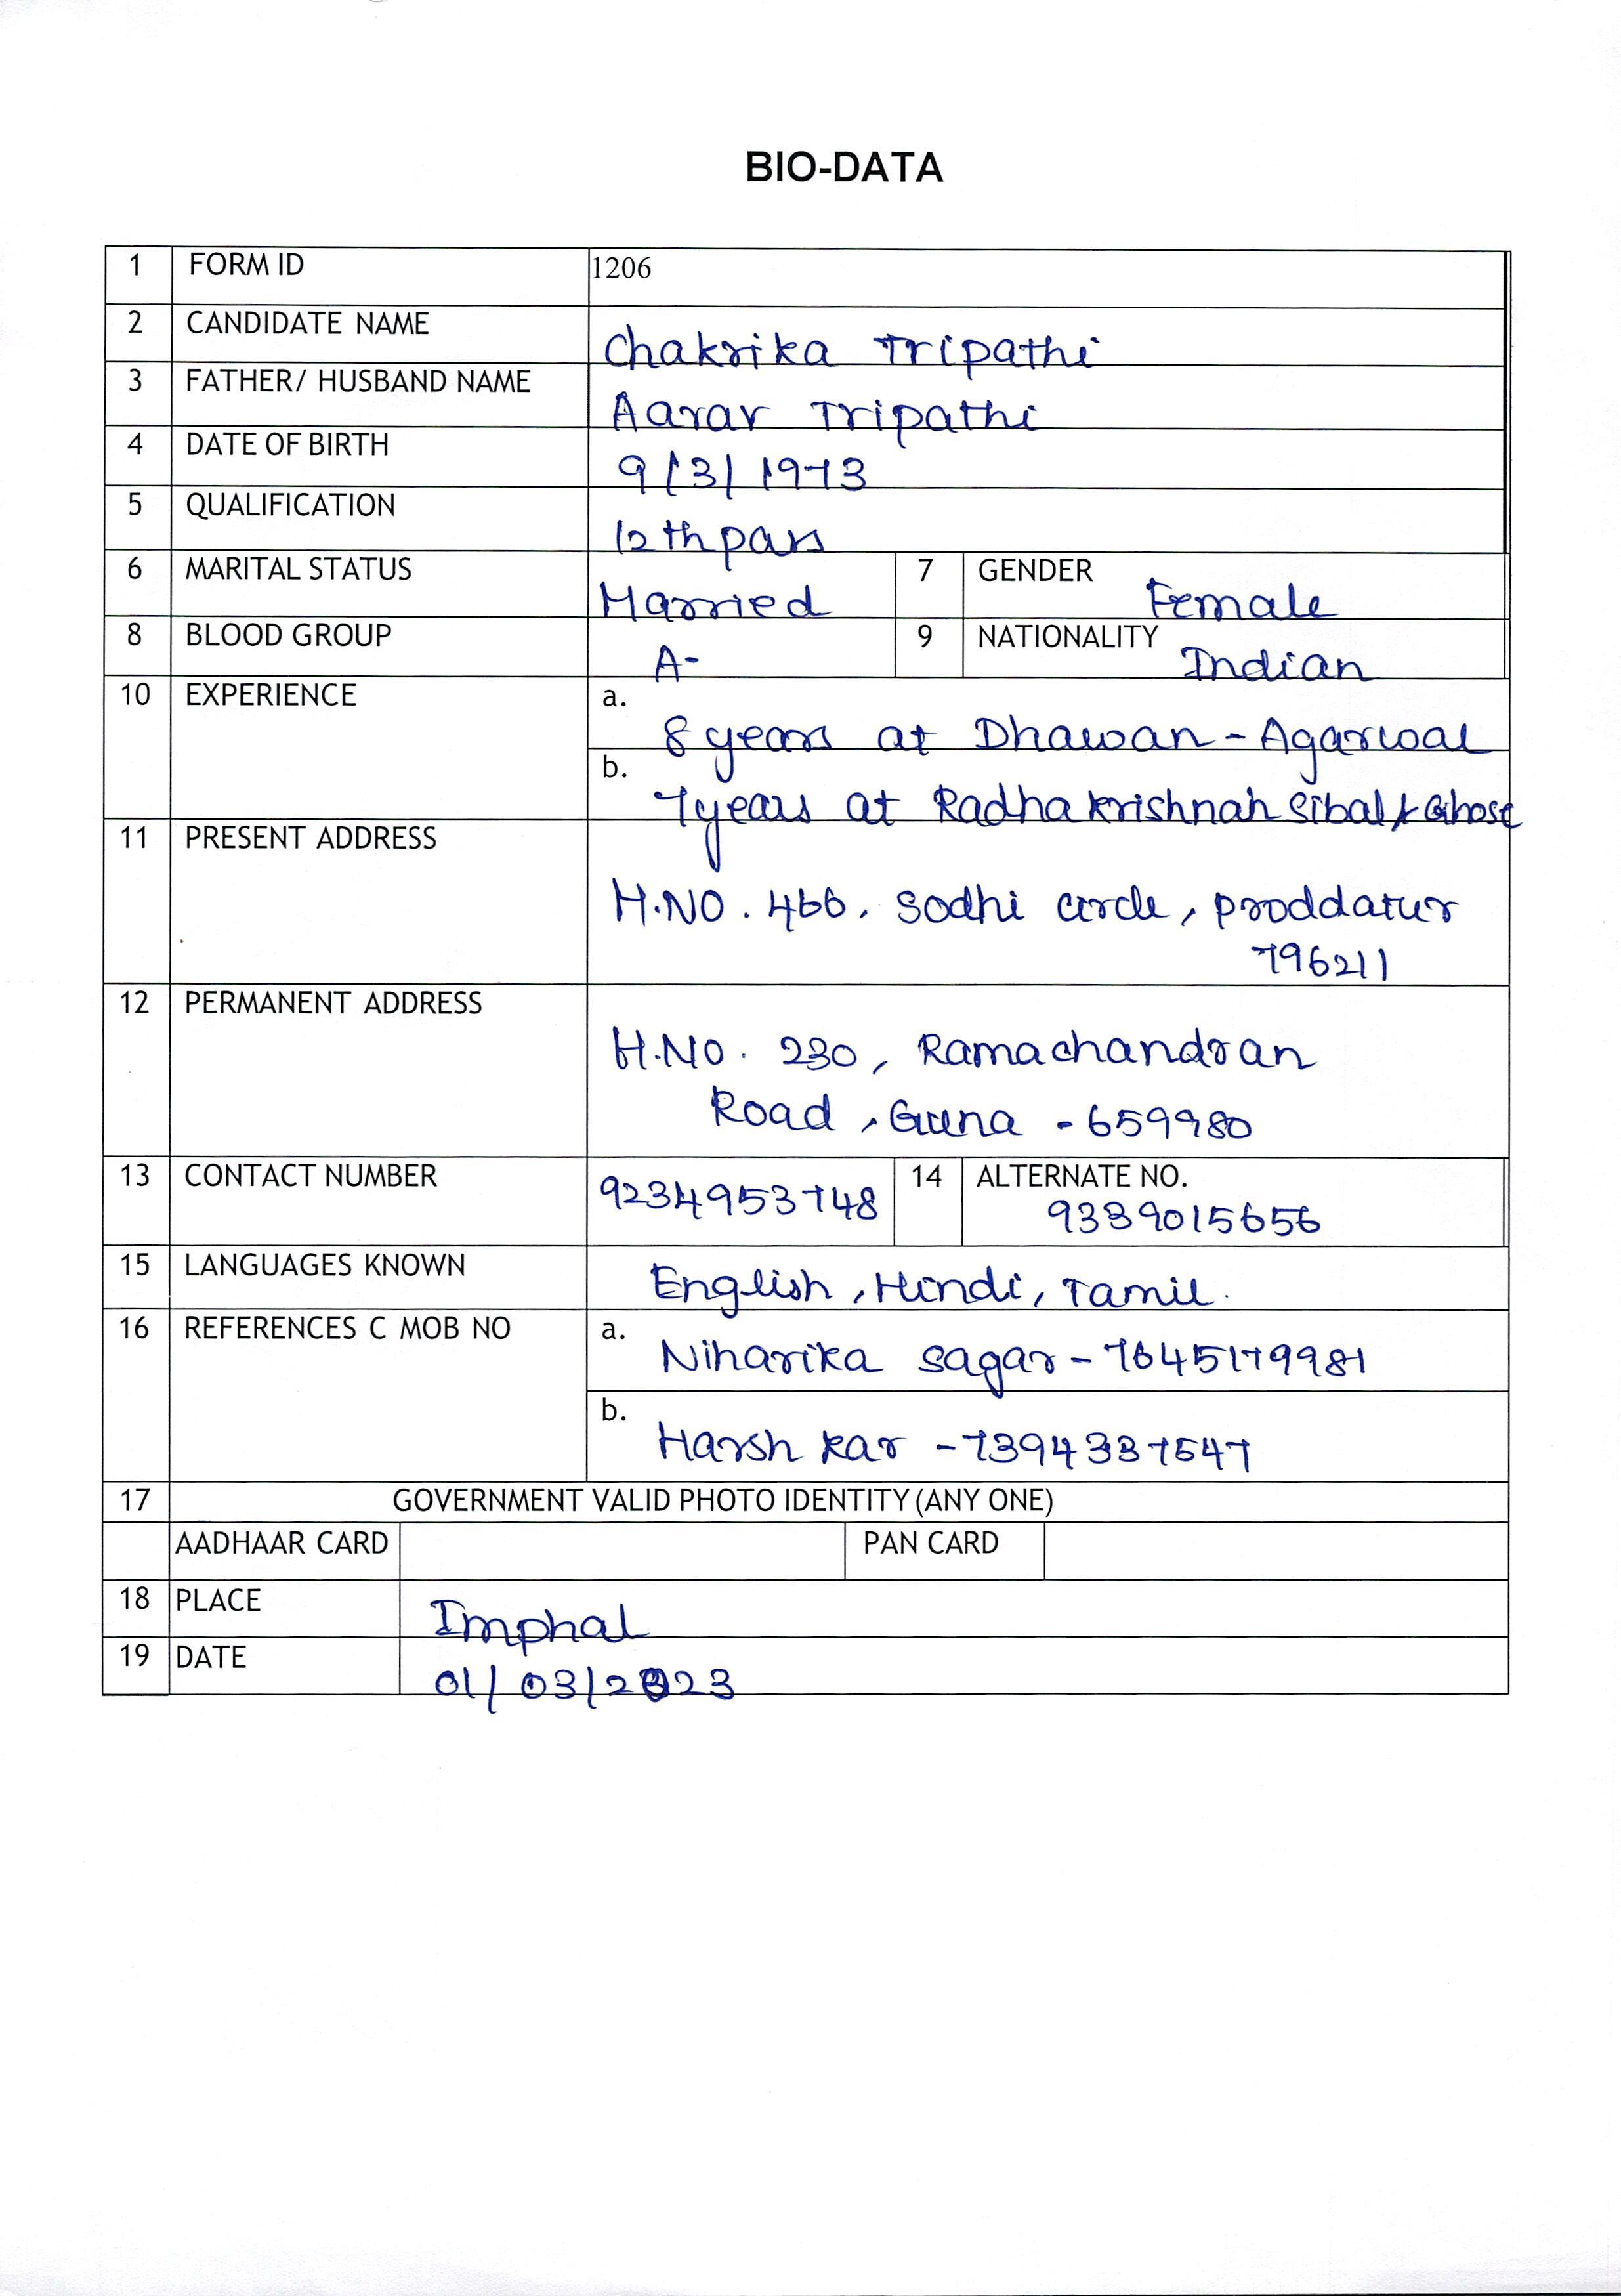 BIO-DATA
1 FORM ID 1206
2 CANDIDATE NAME Chakrika Tripathi
3 FATHER/ HUSBAND NAME Aarav Tripathi
4 DATE OF BIRTH 9/3/1973
5 QUALIFICATION 12th pass
6 MARITAL STATUS Married 7 GENDER Female
8 BLOOD GROUP A- 9 NATIONALITY Indian
10 EXPERIENCE a. 8 years at Dhawan-Agarwal
b. 7 years at Radhakrishnah Sibal & Ghose
11 PRESENT ADDRESS
H.NO. 466, Sodhi circle, proddatur
796211
12 PERMANENT ADDRESS
H.NO. 230, Ramachandran
Road, Guna - 659980
13 CONTACT NUMBER 9234953748 14 ALTERNATE NO.
9339015656
15 LANGUAGES KNOWN English, Hindi, Tamil.
16 REFERENCES C MOB NO a. Niharika sagar - 7645179981
b. Harsh kar - 7394337547
17 GOVERNMENT VALID PHOTO IDENTITY (ANY ONE)
AADHAAR CARD PAN CARD
18 PLACE Imphal
19 DATE 01/03/2023